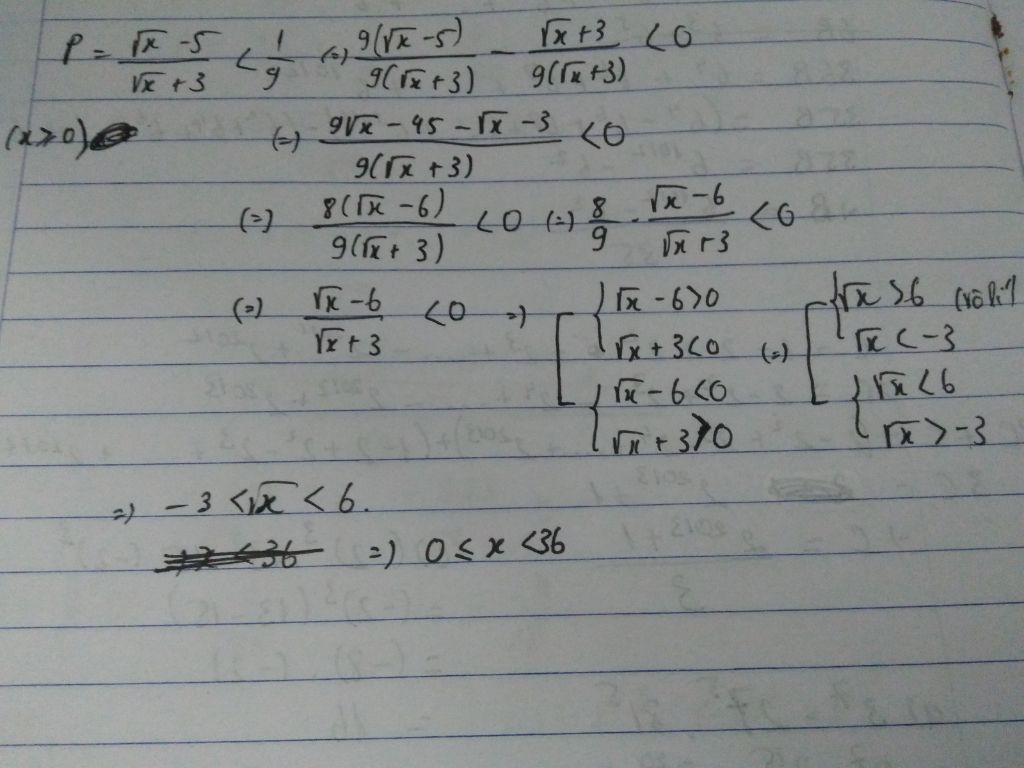 P = (√x - 5)/(√x + 3) < 1/9 (=) 9(√x - 5)/9(√x + 3) - (√x + 3)/9(√x + 3) < 0
(x ≥ 0) (=) (9√x - 45 - √x - 3)/9(√x + 3) < 0
(=) 8(√x - 6)/9(√x + 3) < 0 (=) 8/9 · (√x - 6)/(√x + 3) < 0
(=) (√x - 6)/(√x + 3) < 0 =) [ { √x - 6 > 0 (=) [ { √x > 6 (vô lí)
√x + 3 < 0 √x < -3
{ √x - 6 < 0 { √x < 6
√x + 3 > 0 √x > -3
=) -3 < √x < 6.
=) 0 ≤ x < 36